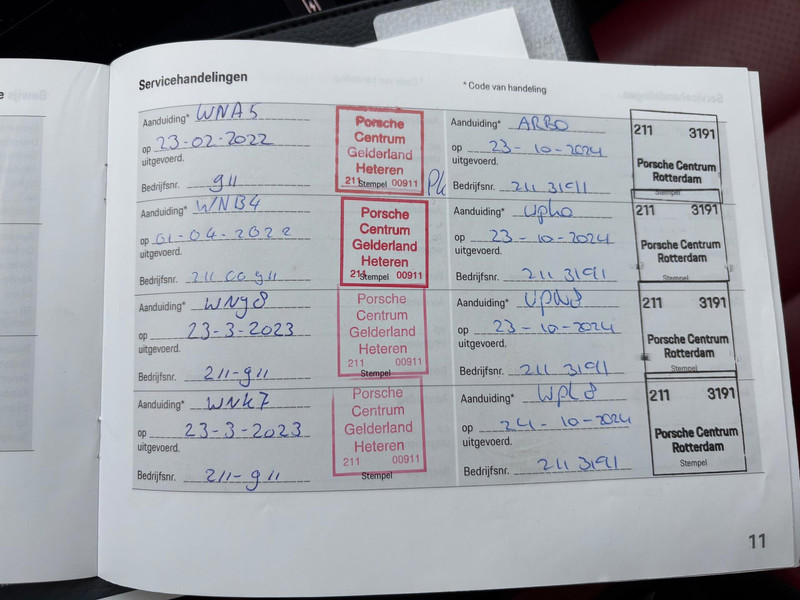 Servicehandelingen
* Code van handeling
Aanduiding* WNA5
op 23-02-2022
uitgevoerd.
Bedrijfsnr. 911
Porsche
Centrum
Gelderland
Heteren
211 Stempel 00911
Aanduiding* WNB4
op 01-04-2022
uitgevoerd.
Bedrijfsnr. 211 00911
Porsche
Centrum
Gelderland
Heteren
211 Stempel 00911
Aanduiding* WNy8
op 23-3-2023
uitgevoerd.
Bedrijfsnr. 211-911
Porsche
Centrum
Gelderland
Heteren
211 00911
Stempel
Aanduiding* WNK7
op 23-3-2023
uitgevoerd.
Bedrijfsnr. 211-911
Porsche
Centrum
Gelderland
Heteren
211 00911
Stempel
Aanduiding* ARBO
op 23-10-2024
uitgevoerd.
Bedrijfsnr. 211 3191
211 3191
Porsche Centrum
Rotterdam
Stempel
Aanduiding*
op 23-10-2024
uitgevoerd.
Bedrijfsnr. 211 3191
211 3191
Porsche Centrum
Rotterdam
Stempel
Aanduiding*
op 23-10-2024
uitgevoerd.
Bedrijfsnr. 211 3191
211 3191
Porsche Centrum
Rotterdam
Stempel
Aanduiding* WPL8
op 24-10-2024
uitgevoerd.
Bedrijfsnr. 211 3191
211 3191
Porsche Centrum
Rotterdam
Stempel
11